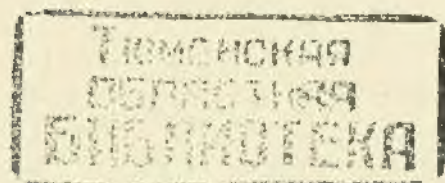 Тюменская
областная
БИБЛИОТЕКА